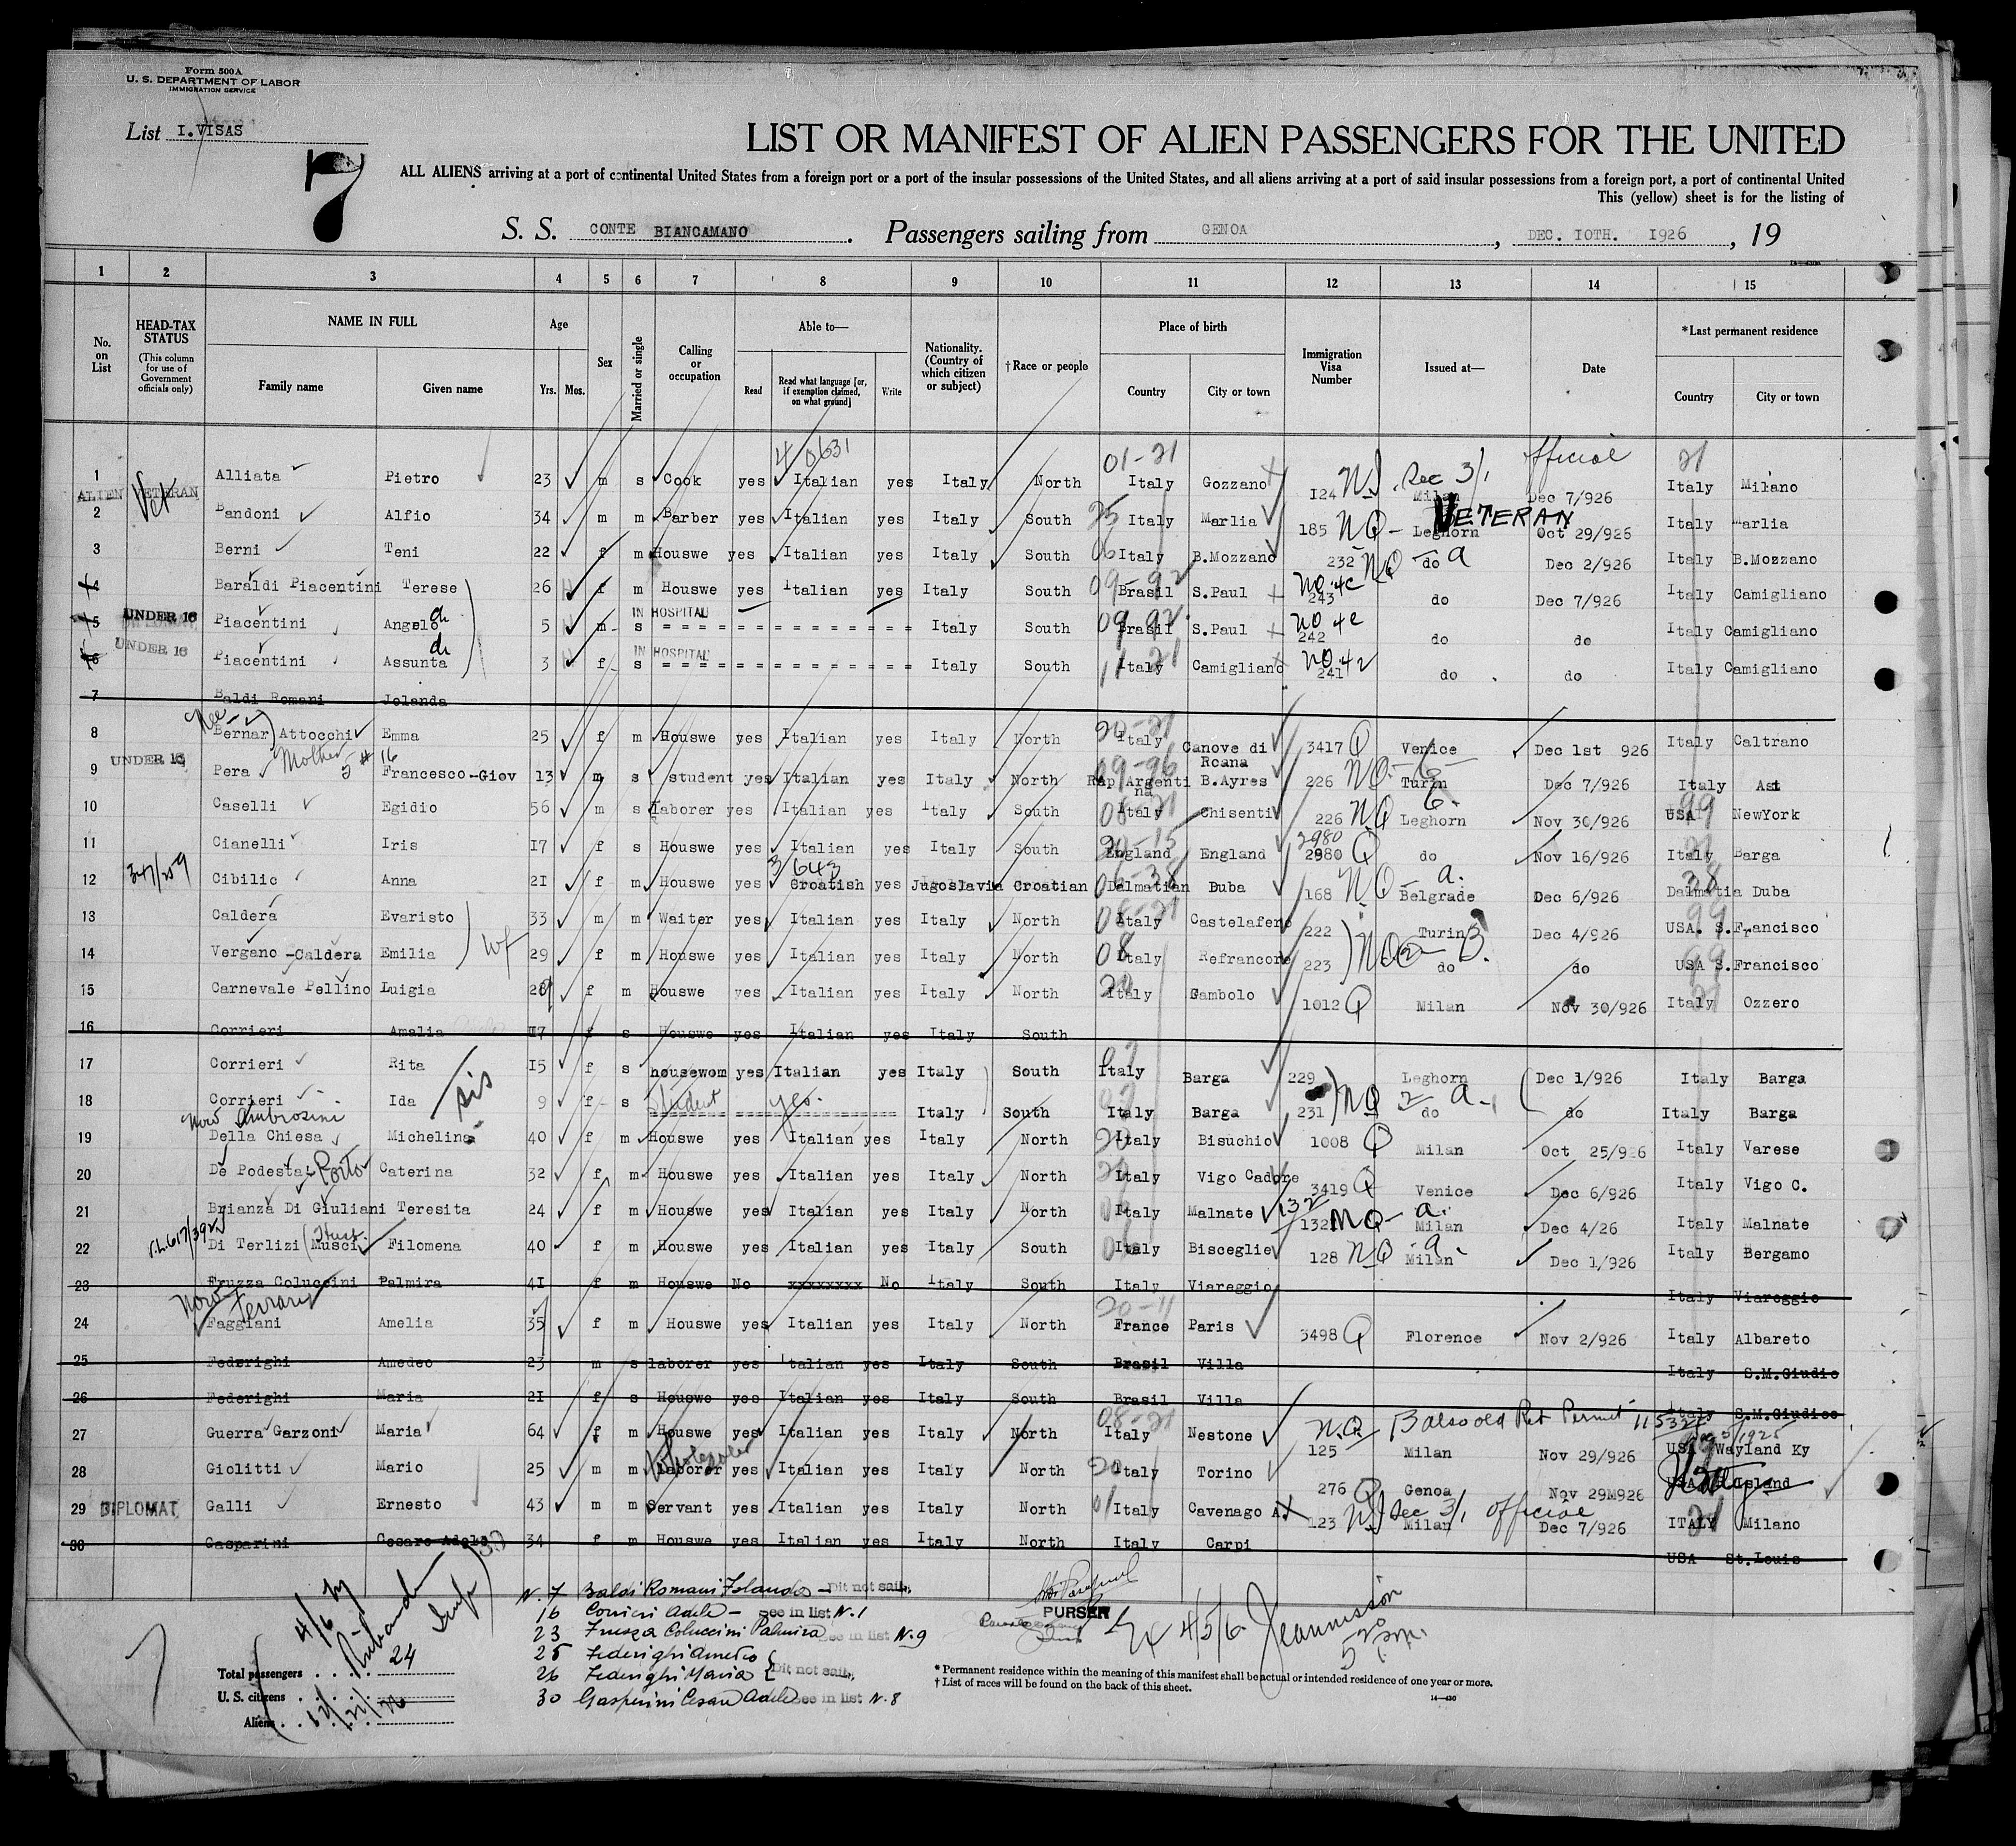 Form 500A
U. S. DEPARTMENT OF LABOR
IMMIGRATION SERVICE
List I.VISAS
7
LIST OR MANIFEST OF ALIEN PASSENGERS FOR THE UNITED
ALL ALIENS arriving at a port of continental United States from a foreign port or a port of the insular possessions of the United States, and all aliens arriving at a port of said insular possessions from a foreign port, a port of continental United
This (yellow) sheet is for the listing of
S. S. CONTE BIANCAMANO. Passengers sailing from GENOA, DEC. IOTH. I926, 19
1 2 3 4 5 6 7 8 9 10 11 12 13 14 15
No. on List
HEAD-TAX STATUS (This column for use of Government officials only)
NAME IN FULL Family name Given name
Age Yrs. Mos.
Sex
Married or single
Calling or occupation
Able to— Read Read what language [or, if exemption claimed, on what ground] Write
Nationality. (Country of which citizen or subject)
†Race or people
Place of birth Country City or town
Immigration Visa Number
Issued at—
Date
*Last permanent residence Country City or town
40631 01-21 official 21
1 Alliata Pietro 23 m s Cook yes Italian yes Italy North Italy Gozzano I24 Sec 3/1 Milan Dec 7/926 Italy Milano
ALIEN VETERAN Vet VETERAN
2 Bandoni Alfio 34 m m Barber yes Italian yes Italy South 25 Italy Marlia 185 NQ- Leghorn Oct 29/926 Italy Marlia
3 Berni Teni 22 f m Houswe yes Italian yes Italy South 06 Italy B.Mozzano 232 NQ do a Dec 2/926 Italy B.Mozzano
4 Baraldi Piacentini Terese 26 f m Houswe yes Italian yes Italy South 09-92 Brasil S.Paul NO.4c 243 do Dec 7/926 Italy Camigliano
UNDER 16 IN HOSPITAL
5 Piacentini Angelo 5 m s = = = = = = = = = = = = = Italy South 09-92 Brasil S.Paul NO 4c 242 do do Italy Camigliano
UNDER 16 IN HOSPITAL
6 Piacentini Assunta 3 f s = = = = = = = = = = = = = Italy South 11-21 Italy Camigliano NO.4 241 do do Italy Camigliano
7 Baldi Romani Jolanda
Nee
8 Bernar) Attocchi Emma 25 f m Houswe yes Italian yes Italy North 20-21 Italy Canove di Roana 3417 Q Venice Dec 1st 926 Italy Caltrano
UNDER 16 Mother # 16
9 Pera Francesco-Giov 13 m s student yes Italian yes Italy North 09-96 Rep Argentina B.Ayres 226 NQ- Turin Dec 7/926 Italy Asti
10 Caselli Egidio 56 m s Laborer yes Italian yes Italy South 08-21 Italy Chisenti 226 NQ Leghorn Nov 30/926 99 USA NewYork
11 Cianelli Iris I7 f s Houswe yes Italian yes Italy South 20-15 England England 2980 2980 Q do Nov 16/926 Italy Barga
347/259 3/643
12 Cibilic Anna 2I f m Houswe yes Croatish yes Jugoslavia Croatian 06-38 Dalmatian Duba 168 NQ- a. Belgrade Dec 6/926 38 Dalmatia Duba
13 Caldera Evaristo 33 m m Waiter yes Italian yes Italy North 08-21 Italy Castelafero 222 Turin Dec 4/926 99 USA. S.Francisco
14 Vergano -Caldera Emilia wf 29 f m Houswe yes Italian yes Italy North 08 Italy Refrancore 223 do do 99 USA S.Francisco
15 Carnevale Pellino Luigia f m Houswe yes Italian yes Italy North 20 Italy Gambolo 1012 Q Milan Nov 30/926 21 Italy Ozzero
16 Corrieri Amalia I7 f s Houswe yes Italian yes Italy South
17 Corrieri Rita I5 f s housewom yes Italian yes Italy South Italy Barga 229 Leghorn Dec 1/926 Italy Barga
18 Corrieri Ida sis 9 f s Student yes. Italy South Italy Barga 231 NQ 2 a- do do Italy Barga
Now Ambrosini
19 Della Chiesa Michelina 40 f m Houswe yes Italian yes Italy North 20 Italy Bisuchio 1008 Q Milan Oct 25/926 Italy Varese
20 De Podesta Caterina 32 f m Houswe yes Italian yes Italy North Italy Vigo Cadore 3419 Q Venice Dec 6/926 Italy Vigo C.
21 Brianza Di Giuliani Teresita 24 f m Houswe yes Italian yes Italy North Italy Malnate 132 132 NQ- a. Milan Dec 4/26 Italy Malnate
22 Di Terlizi (Musci Filomena 40 f m Houswe yes Italian yes Italy South Italy Bisceglie 128 NQ a. Milan Dec 1/926 Italy Bergamo
23 Fruzza Coluccini Palmira 4I f m Houswe No xxxxxxxx No Italy South Italy Viareggio Italy Viareggio
Now Ferrary 20-11
24 Faggiani Amelia 35 f m Houswe yes Italian yes Italy North France Paris 3498 Q Florence Nov 2/926 Italy Albareto
25 Federighi Amedeo 23 m s laborer yes Italian yes Italy South Brasil Villa Italy S.M.Giudic
26 Federighi Maria 2I f s Houswe yes Italian yes Italy South Brasil Villa Italy S.M.Giudice
27 Guerra Garzoni Maria 64 f m Houswe yes Italian yes Italy North 08-21 Italy Nestone N.Q. 125 Milan Nov 29/926 USA Wayland Ky
28 Giolitti Mario 25 m m Laborer yes Italian yes Italy North 20 Italy Torino 276 Q Genoa Nov 29M926 USA
29 DIPLOMAT Galli Ernesto 43 m m Servant yes Italian yes Italy North 01 Italy Cavenago A. 123 Sec 3/1 official Milan Dec 7/926 21 ITALY Milano
30 Gasparini Cesare Adele 34 f m Houswe yes Italian yes Italy North Italy Carpi USA St.Louis
N. 7 Baldi Romani Jolanda - Dit not sail,
16 Corrieri Adele - see in list N.1
23 Fruzza Coluccini Palmira see in list N.9
25 Federighi Amedeo
26 Federighi Maria } Dit not sail,
30 Gasperini Cesare Adele see in list N.8
PURSER
4/5/6. Jeannisson
5 20 P.M.
Total passengers . . . 24
U. S. citizens . . .
Aliens . . .
* Permanent residence within the meaning of this manifest shall be actual or intended residence of one year or more.
† List of races will be found on the back of this sheet.
14—430